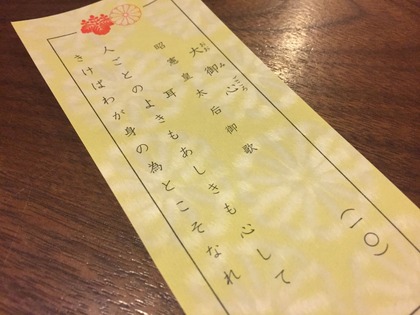 （一〇）
おおみごころ
大御心
昭憲皇太后御歌
耳
人ごとのよきもあしきも心して
きけばわが身の為とこそなれ